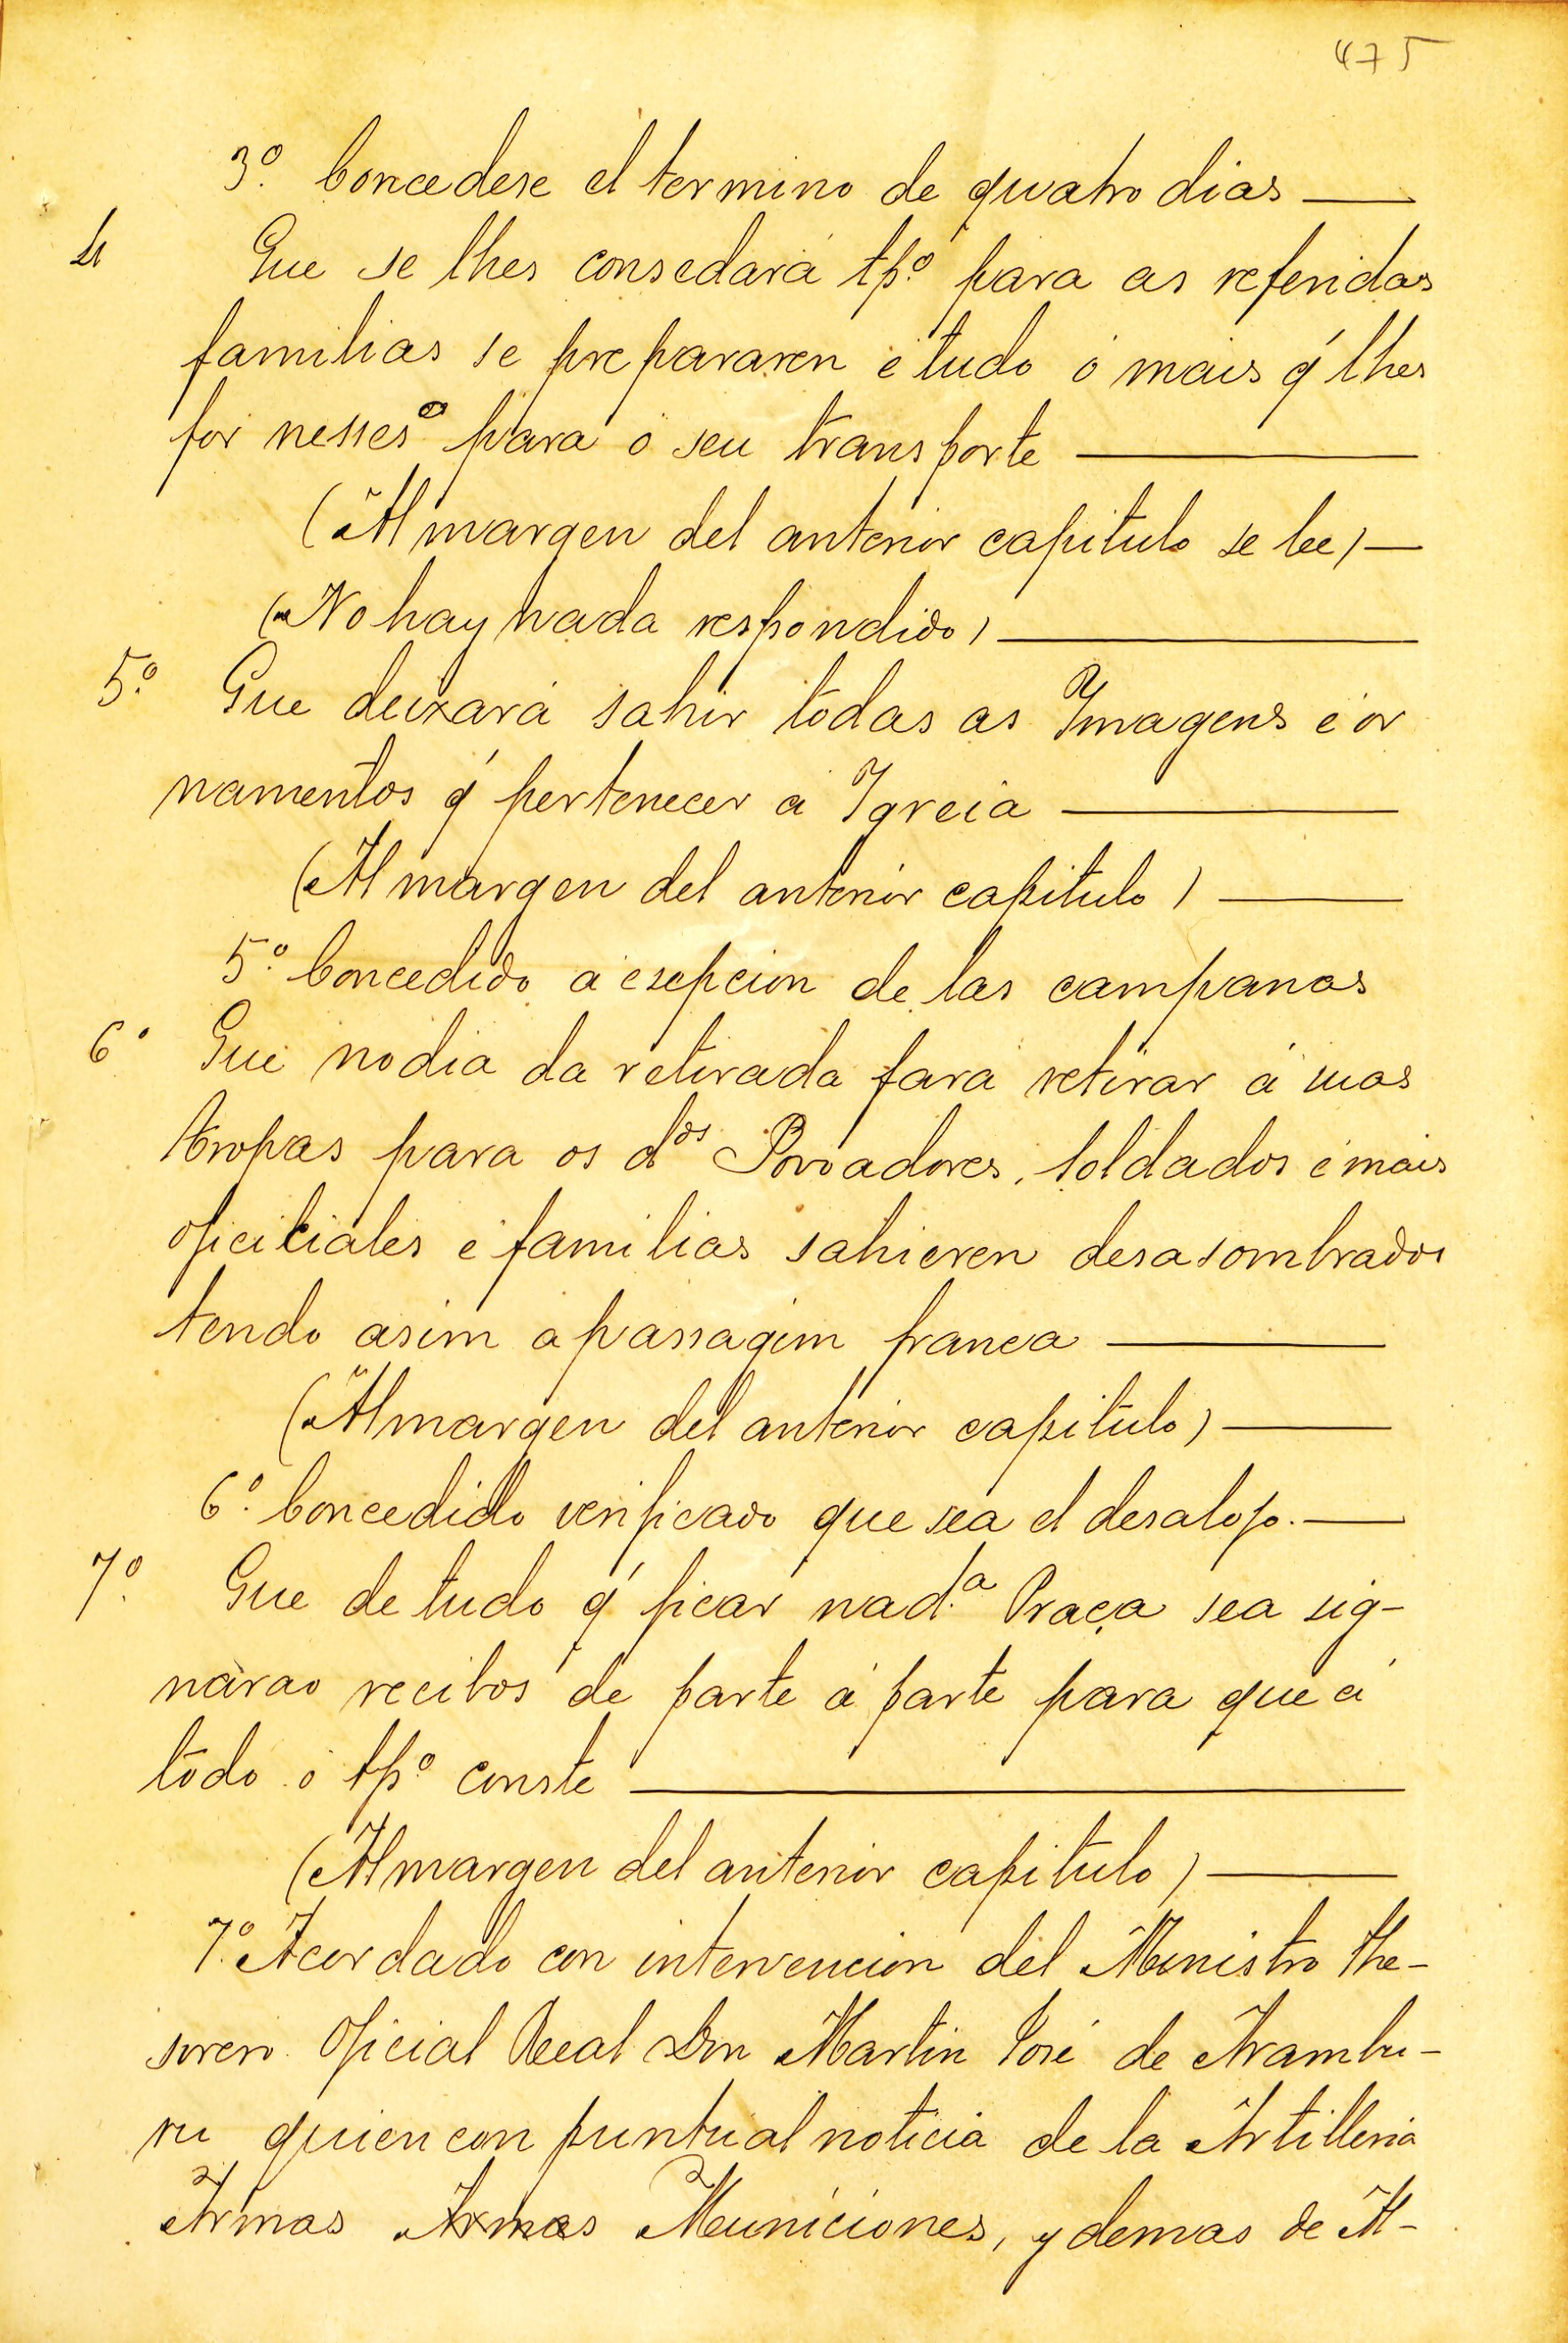 475
3º. Concedese el termino de quatro dias
4 Que se lhes consedará tpº. para as referidas
familias se prepararen é tudo ó mais q' lhes
for nessesº para ó seu transporte
(Al margen del anterior capitulo se lee)
(No hay nada respondido)
5º. Que deixará sahir todas as Ymagens é or
namentos q' pertenecer á Ygreia
(Al margen del anterior capitulo)
5º. Concedido á esepcion de las campanas
6º Que no dia da retirada fará retirar á suas
tropas para os dºs Povoadores, soldados é mais
oficiciales é familias sahieren desasombrados
tendo asim a passagim franca
(Al margen del anterior capitulo)
6º. Concedido verificado que sea el desalojo.
7º. Que de tudo q' ficar na d.ª Praça sea sig-
nárao recibos de parte á parte para que á
todo ó tpº. conste
(Al margen del anterior capitulo)
7º. Acordado con intervencion del Ministro The-
sorero Oficial Real Don Martin José de Arambu-
ru quien con puntual noticia de la Artilleria
Armas Armas Municiones, y demas de A-